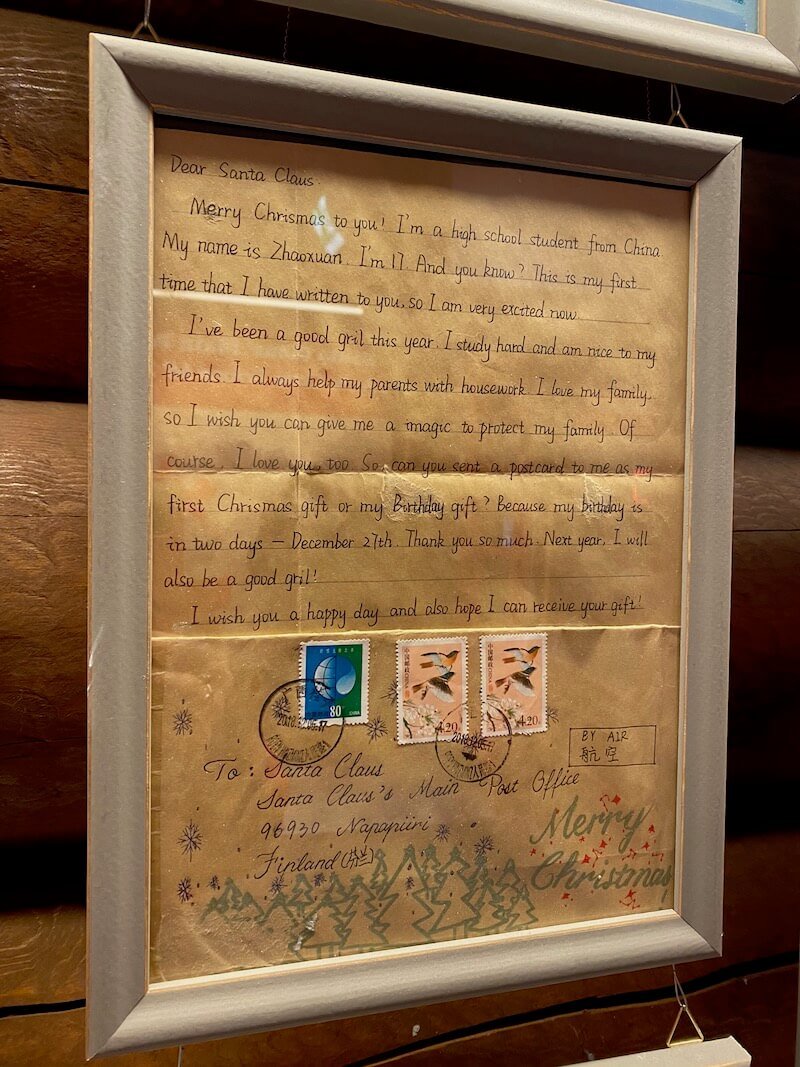 Dear Santa Claus.
Merry Chrismas to you! I'm a high school student from China.
My name is Zhaoxuan. I'm 17. And you know? This is my first
time that I have written to you, so I am very excited now.
I've been a good gril this year. I study hard and am nice to my
friends. I always help my parents with housework. I love my family,
so I wish you can give me a magic to protect my family. Of
course, I love you, too. So, can you sent a postcard to me as my
first Chrismas gift or my Birthday gift? Because my birthday is
in two days - December 27th. Thank you so much. Next year, I will
also be a good gril!
I wish you a happy day and also hope I can receive your gift!
80
CHINA
中国邮政
4.20
中国邮政
4.20
广西
2018.12.05.17
2018.12.05.17
BY AIR
航空
To: Santa Claus
Santa Claus's Main Post Office
96930 Napapiiri
Finland (芬兰)
Merry
Christmas